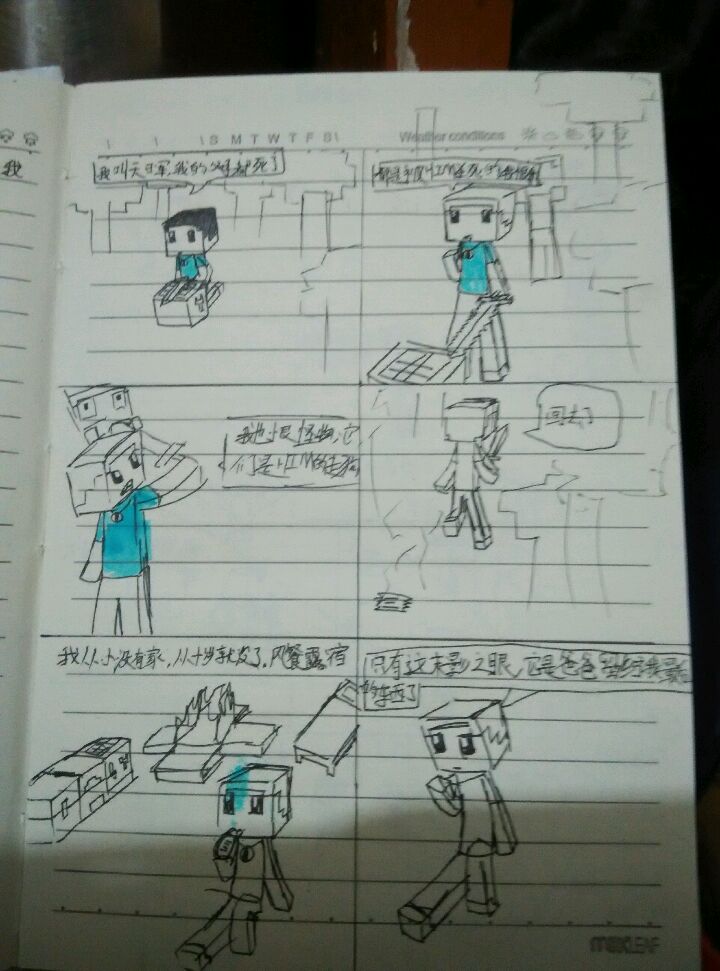 我
S M T W T F S
Weather conditions
我叫天日军,我的父母都死了
我也恨怪物,它
们是HIM的走狗
回去了
我从小没有家,从十岁就 了,风餐露宿
只有这末影之眼,它是爸爸 给我最
的东西了